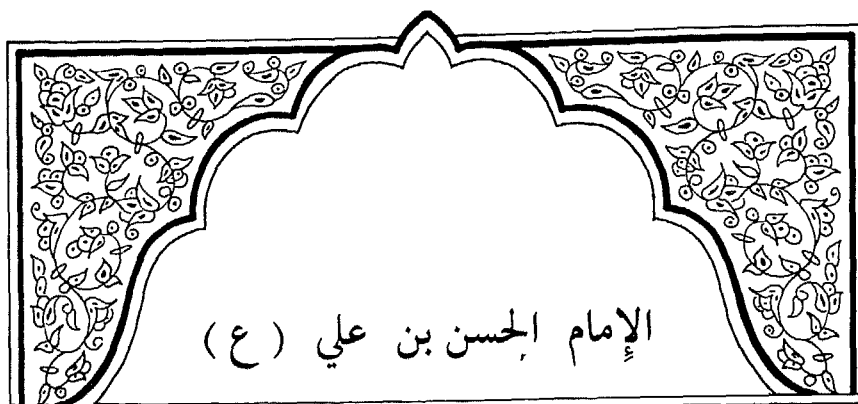 الإمام الحسن بن علي (ع)